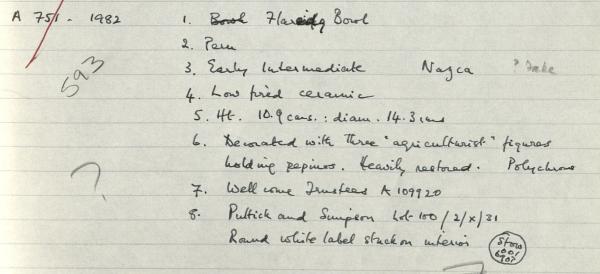 A 751. 1982 1. Bowl Flaring Bowl
593
2. Peru
3. Early Intermediate Nazca ? Fake
4. Low fired ceramic
5. Ht. 10.9 cms. : diam. 14.3 cms
6. Decorated with three "agriculturist" figures
holding pepinos. Heavily restored. Polychrome
?
7. Wellcome Trustees A 109920
8. Puttick and Simpson Lot 100/2/x/31
Round white label stuck on interior